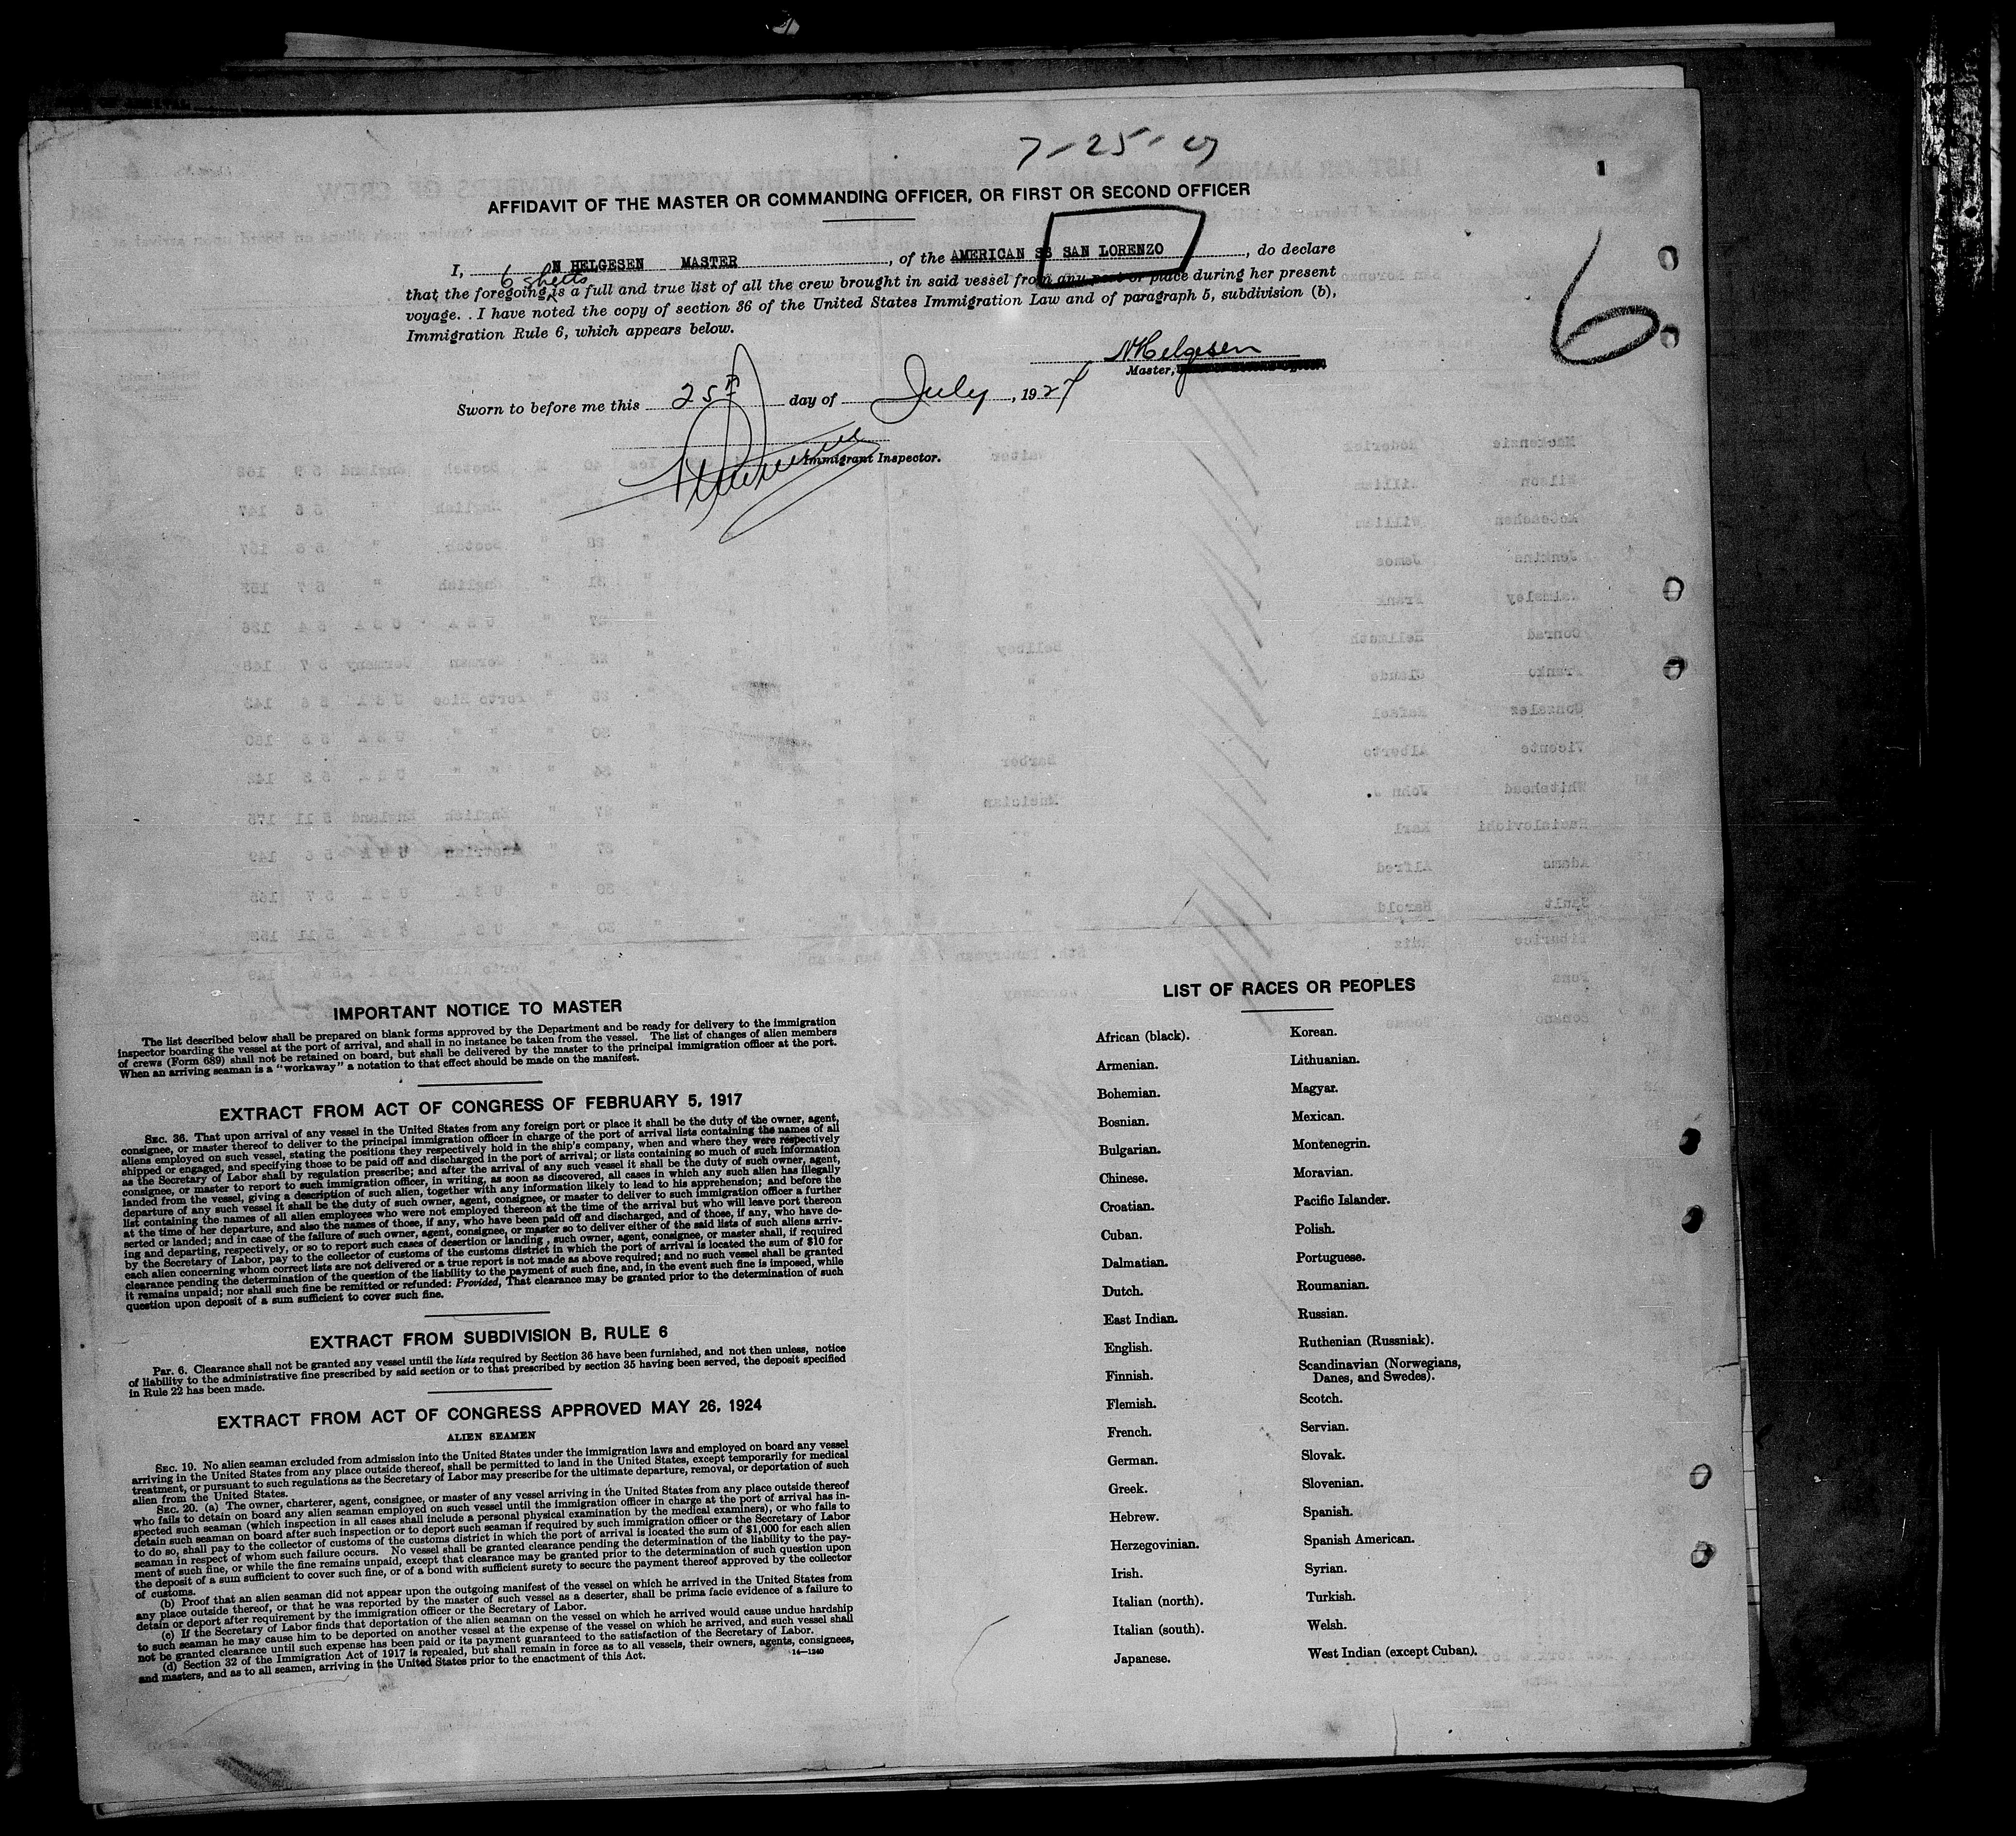 7-25-27
AFFIDAVIT OF THE MASTER OR COMMANDING OFFICER, OR FIRST OR SECOND OFFICER
I, N HELGESEN MASTER, of the AMERICAN SS SAN LORENZO, do declare
6 sheets
that the foregoing is a full and true list of all the crew brought in said vessel from any port or place during her present
voyage. . I have noted the copy of section 36 of the United States Immigration Law and of paragraph 5, subdivision (b),
Immigration Rule 6, which appears below.
6
N Helgesen
Master,
Sworn to before me this 25th day of July, 1927
Immigrant Inspector.
IMPORTANT NOTICE TO MASTER
The list described below shall be prepared on blank forms approved by the Department and be ready for delivery to the immigration
inspector boarding the vessel at the port of arrival, and shall in no instance be taken from the vessel. The list of changes of alien members
of crews (Form 689) shall not be retained on board, but shall be delivered by the master to the principal immigration officer at the port.
When an arriving seaman is a "workaway" a notation to that effect should be made on the manifest.
EXTRACT FROM ACT OF CONGRESS OF FEBRUARY 5, 1917
SEC. 36. That upon arrival of any vessel in the United States from any foreign port or place it shall be the duty of the owner, agent,
consignee, or master thereof to deliver to the principal immigration officer in charge of the port of arrival lists containing the names of all
aliens employed on such vessel, stating the positions they respectively hold in the ship's company, when and where they were respectively
shipped or engaged, and specifying those to be paid off and discharged in the port of arrival; or lists containing so much of such information
as the Secretary of Labor shall by regulation prescribe; and after the arrival of any such vessel it shall be the duty of such owner, agent,
consignee, or master to report to such immigration officer, in writing, as soon as discovered, all cases in which any such alien has illegally
landed from the vessel, giving a description of such alien, together with any information likely to lead to his apprehension; and before the
departure of any such vessel it shall be the duty of such owner, agent, consignee, or master to deliver to such immigration officer a further
list containing the names of all alien employees who were not employed thereon at the time of the arrival but who will leave port thereon
at the time of her departure, and also the names of those, if any, who have been paid off and discharged, and of those, if any, who have de-
serted or landed; and in case of the failure of such owner, agent, consignee, or master so to deliver either of the said lists of such aliens arriv-
ing and departing, respectively, or so to report such cases of desertion or landing , such owner, agent, consignee, or master shall, if required
by the Secretary of Labor, pay to the collector of customs of the customs district in which the port of arrival is located the sum of $10 for
each alien concerning whom correct lists are not delivered or a true report is not made as above required; and no such vessel shall be granted
clearance pending the determination of the question of the liability to the payment of such fine, and, in the event such fine is imposed, while
it remains unpaid; nor shall such fine be remitted or refunded: Provided, That clearance may be granted prior to the determination of such
question upon deposit of a sum sufficient to cover such fine.
EXTRACT FROM SUBDIVISION B, RULE 6
Par. 6. Clearance shall not be granted any vessel until the lists required by Section 36 have been furnished, and not then unless, notice
of liability to the administrative fine prescribed by said section or to that prescribed by section 35 having been served, the deposit specified
in Rule 22 has been made.
EXTRACT FROM ACT OF CONGRESS APPROVED MAY 26, 1924
ALIEN SEAMEN
SEC. 19. No alien seaman excluded from admission into the United States under the immigration laws and employed on board any vessel
arriving in the United States from any place outside thereof, shall be permitted to land in the United States, except temporarily for medical
treatment, or pursuant to such regulations as the Secretary of Labor may prescribe for the ultimate departure, removal, or deportation of such
alien from the United States.
SEC. 20. (a) The owner, charterer, agent, consignee, or master of any vessel arriving in the United States from any place outside thereof
who fails to detain on board any alien seaman employed on such vessel until the immigration officer in charge at the port of arrival has in-
spected such seaman (which inspection in all cases shall include a personal physical examination by the medical examiners), or who fails to
detain such seaman on board after such inspection or to deport such seaman if required by such immigration officer or the Secretary of Labor
to do so, shall pay to the collector of customs of the customs district in which the port of arrival is located the sum of $1,000 for each alien
seaman in respect of whom such failure occurs. No vessel shall be granted clearance pending the determination of the liability to the pay-
ment of such fine, or while the fine remains unpaid, except that clearance may be granted prior to the determination of such question upon
the deposit of a sum sufficient to cover such fine, or of a bond with sufficient surety to secure the payment thereof approved by the collector
of customs.
(b) Proof that an alien seaman did not appear upon the outgoing manifest of the vessel on which he arrived in the United States from
any place outside thereof, or that he was reported by the master of such vessel as a deserter, shall be prima facie evidence of a failure to
detain or deport after requirement by the immigration officer or the Secretary of Labor.
(c) If the Secretary of Labor finds that deportation of the alien seaman on the vessel on which he arrived would cause undue hardship
to such seaman he may cause him to be deported on another vessel at the expense of the vessel on which he arrived, and such vessel shall
not be granted clearance until such expense has been paid or its payment guaranteed to the satisfaction of the Secretary of Labor.
(d) Section 32 of the Immigration Act of 1917 is repealed, but shall remain in force as to all vessels, their owners, agents, consignees,
and masters, and as to all seamen, arriving in the United States prior to the enactment of this Act.
14—1240
LIST OF RACES OR PEOPLES
African (black).
Armenian.
Bohemian.
Bosnian.
Bulgarian.
Chinese.
Croatian.
Cuban.
Dalmatian.
Dutch.
East Indian.
English.
Finnish.
Flemish.
French.
German.
Greek.
Hebrew.
Herzegovinian.
Irish.
Italian (north).
Italian (south).
Japanese.
Korean.
Lithuanian.
Magyar.
Mexican.
Montenegrin.
Moravian.
Pacific Islander.
Polish.
Portuguese.
Roumanian.
Russian.
Ruthenian (Russniak).
Scandinavian (Norwegians,
Danes, and Swedes).
Scotch.
Servian.
Slovak.
Slovenian.
Spanish.
Spanish American.
Syrian.
Turkish.
Welsh.
West Indian (except Cuban).